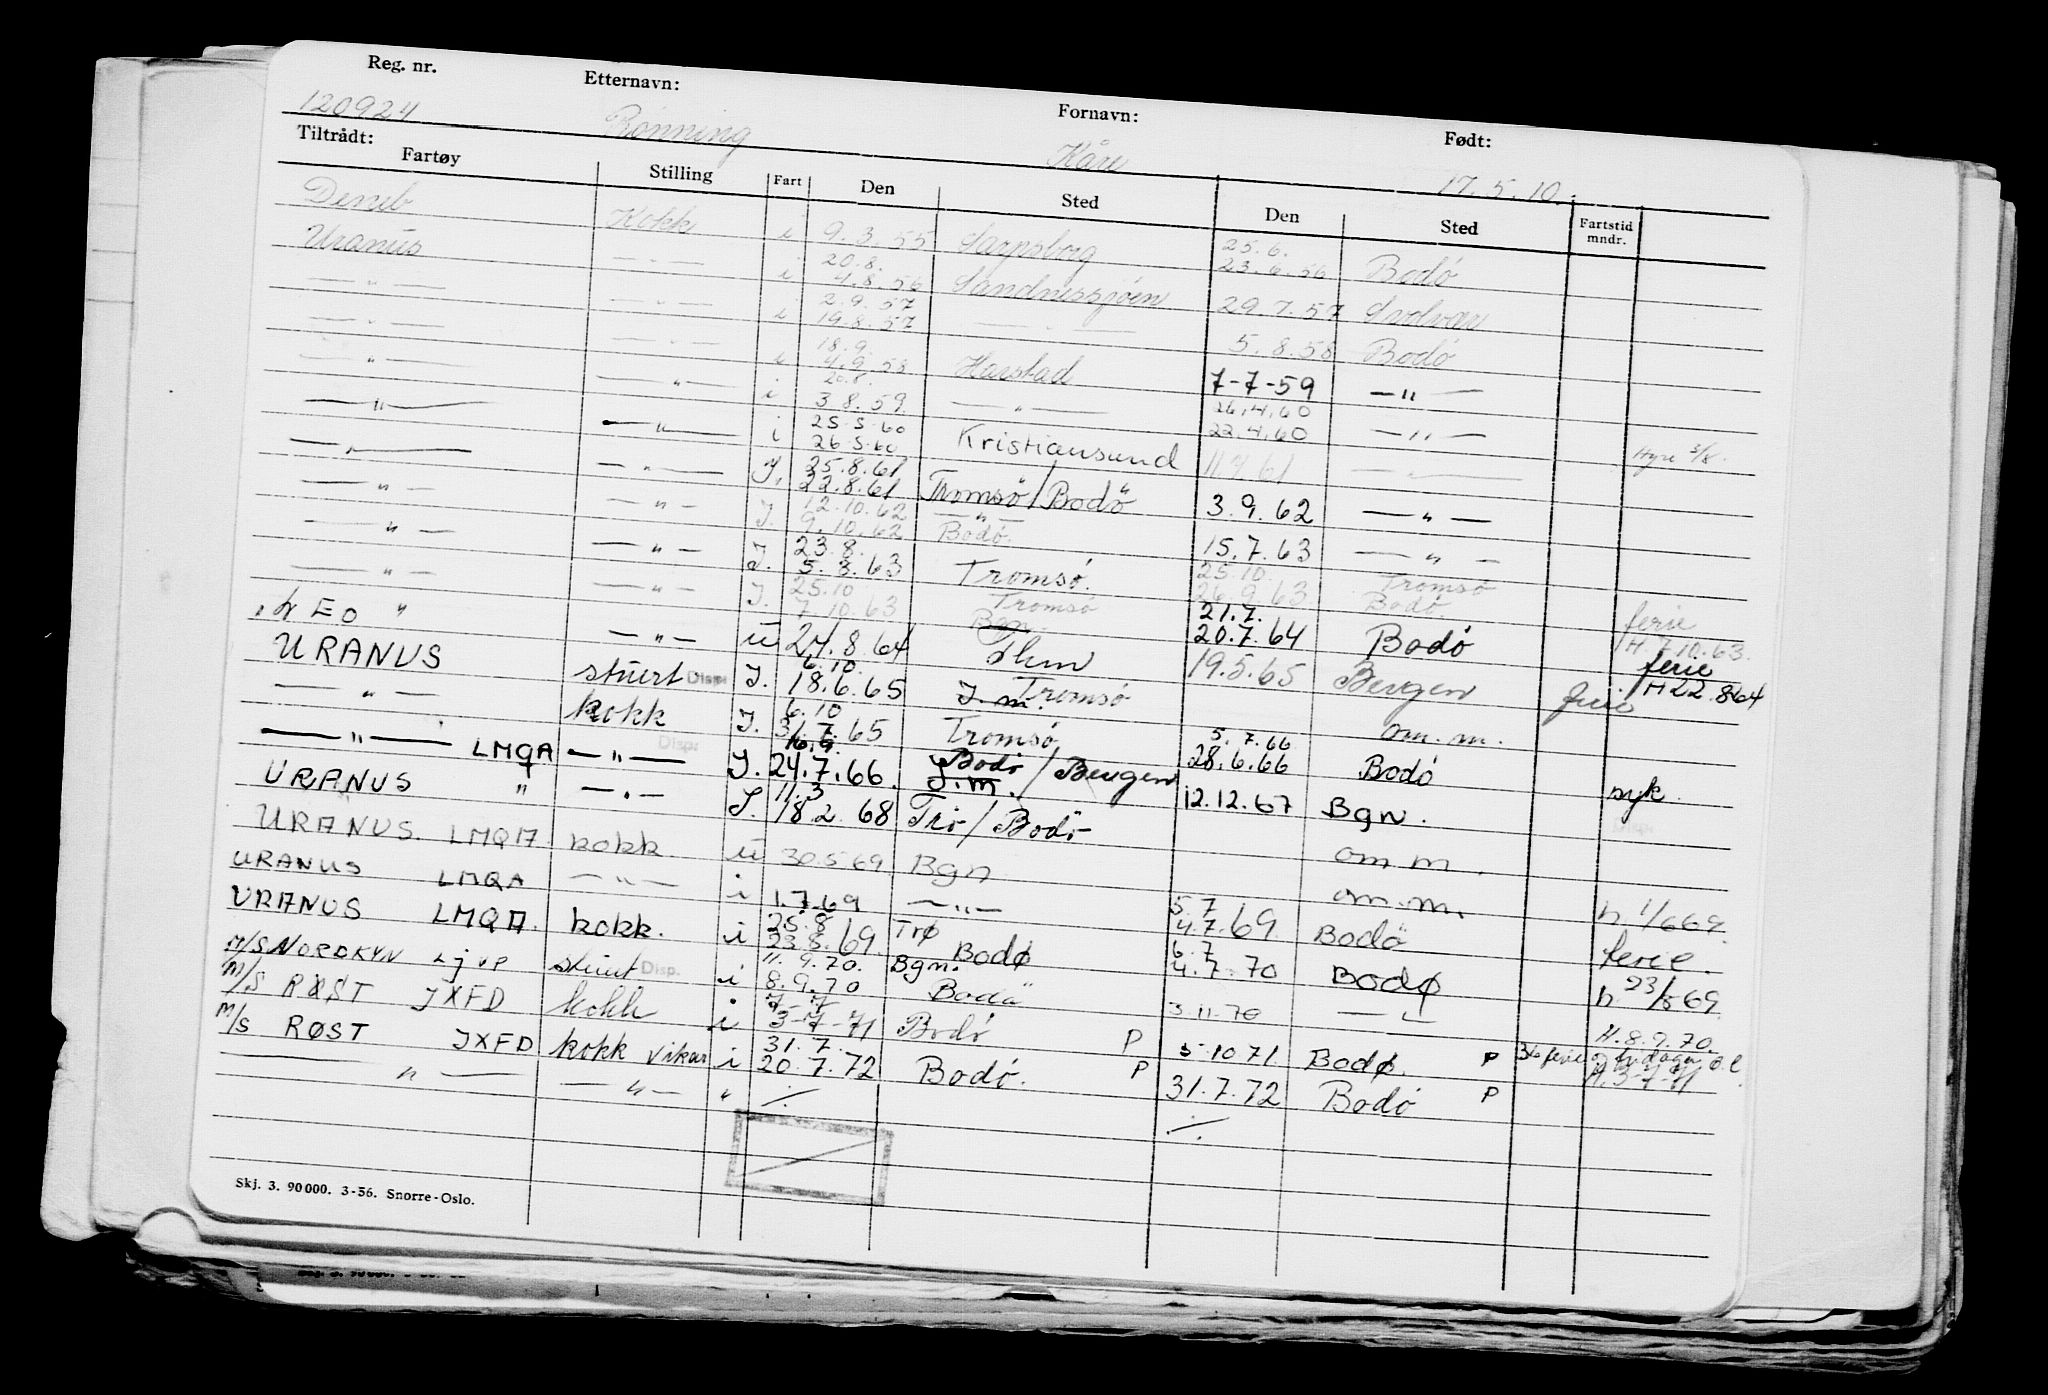 Reg. nr. Etternavn: Fornavn: Født:
120924 Rønning Kåre 17.5.10.
Tiltrådt:
Fartøy Stilling Fart Den Sted Den Sted Fartstid mndr.
Deneb Kokk i 9.3.55 Sarpsborg 25.6.
20.8. 23.6.56 Bodö
Uranus — " — i 4.8.56 Sandnessjöen 29.7.57 Svolvær
2.9.57
— " — — " — i 19.8.57 — " — 5.8.58 Bodö
18.9.
— " — — " — i 4.9.58 Harstad 7-7-59 — " —
20.8. 26.4.60
— " — — " — i 3.8.59 — " — 22.4.60 — " — Hyre 3/8.
25.5.60
— " — — " — i 26.5.60 Kristiansund 11.7.61 — " —
25.8.61
— " — — " — I. 22.8.61 Tromsö/Bodö 3.9.62 — " —
12.10.62 — " —
— " — — " — I. 9.10.62 Bodö. 15.7.63 — " —
23.8. 25.10. Tromsö
— " — — " — I. 5.8.63 Tromsö. 26.9.63 Bodö ferie
25.10 Tromsö 21.7. H. 7.10.63.
— " — — " — I. 7.10.63 Bgn. 20.7.64 Bodö ferie
LEO " — " — u 24.8.64 Thm 19.5.65 Bergen ferie H 22.8.64
6.10.
URANUS stuert Disp: I. 18.6.65 I.m. Tromsö om.m.
6.10 5.7.66
— " — kokk I. 31.7.65 Tromsö 28.6.66 Bodö syk.
16.9. Bodö
— " — LMQA — " — I. 24.7.66. I.m. / Bergen 12.12.67 Bgn.
11.3
URANUS " — " — I. 18.2.68 Trö/Bodö om m.
URANUS. LMQA kokk u 30.5.69 Bgn om.m. h. 1/6 69.
5.7
URANUS LMQA — " — i 1.7.69 — " — 4.7.69. Bodö ferie.
25.8 Trø 6.7
URANUS LMQA. kokk. i 23.8.69. Bodø 4.7.70 Bodø h. 23/8 69.
11.9.70. Bgn.
M/S NORDKYN LJVP stuert Disp. i 8.9.70 Bodö 3.11.70 — " — H. 8.9.70.
7-7
M/S RØST JXFD kokk i 3-7-71 Bodö P 5.10 71. Bodø. P H. 3-7-71
31.7.
M/S RØST JXFD kokk vikar i 20.7.72 Bodö. P 31.7.72 Bodö P
— " — — " — " ./. ./.
Skj. 3. 90 000. 3-56. Snorre-Oslo.